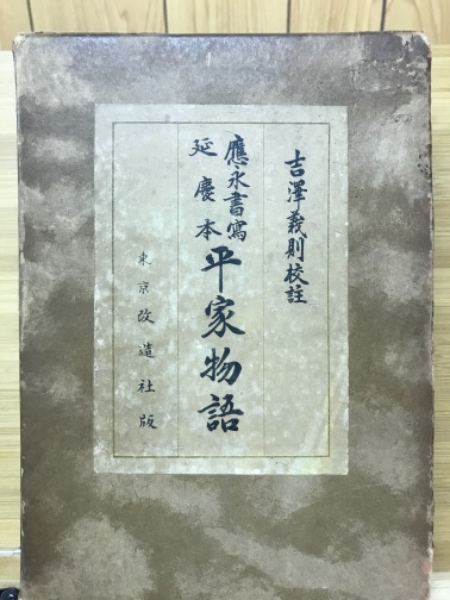 吉澤義則校註
應永書寫
延慶本
平家物語
東京改造社版